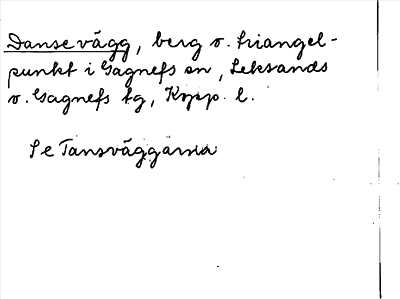 Danse vägg, berg o. triangel-
punkt i Gagnefs sn, Leksands
o. Gagnefs tg, Kopp. l.
Se Tansväggarna